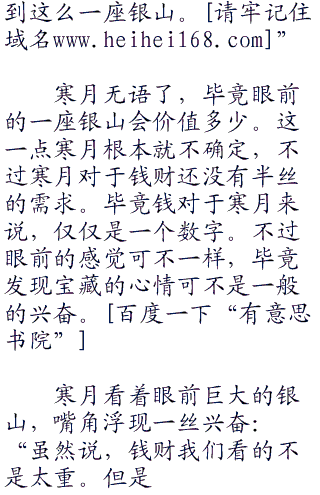 到这么一座银山。[请牢记住
域名www.heihei168.com]”
寒月无语了，毕竟眼前
的一座银山会价值多少。这
一点寒月根本就不确定，不
过寒月对于钱财还没有半丝
的需求。毕竟钱对于寒月来
说，仅仅是一个数字。不过
眼前的感觉可不一样，毕竟
发现宝藏的心情可不是一般
的兴奋。[百度一下“有意思
书院”]
寒月看着眼前巨大的银
山，嘴角浮现一丝兴奋：
“虽然说，钱财我们看的不
是太重。但是